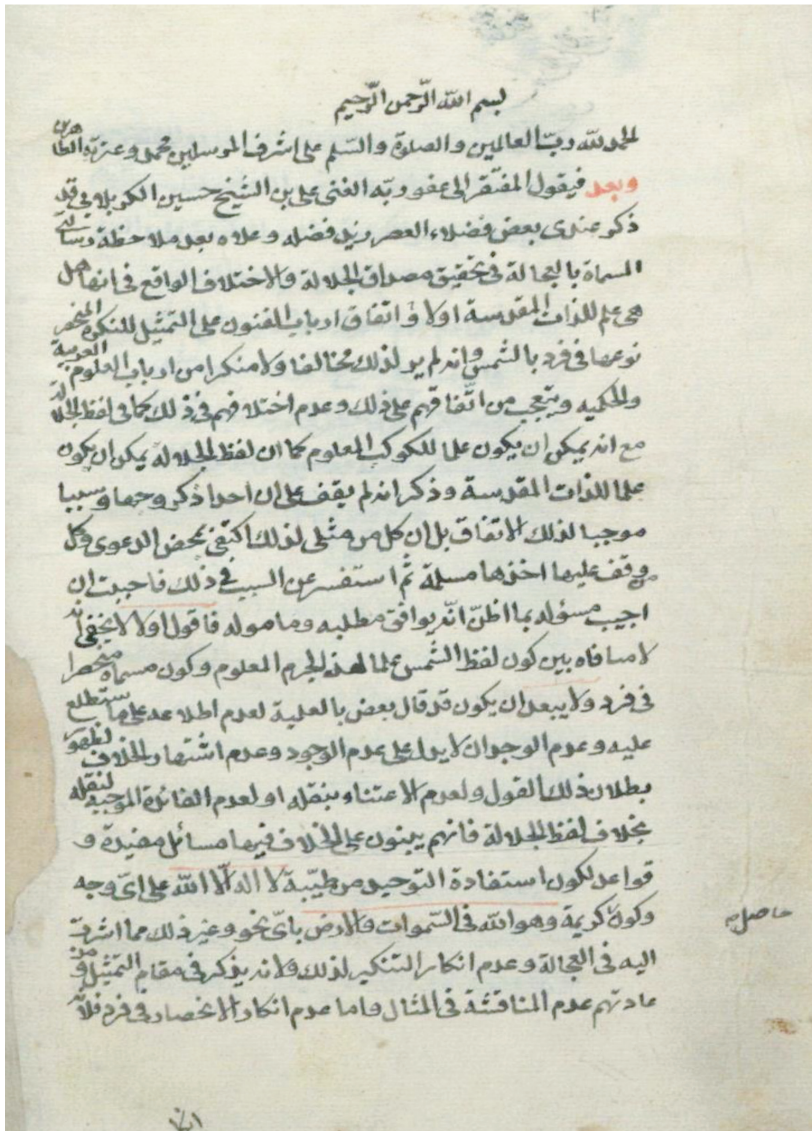 بسم الله الرحمن الرحيم
الحمد لله رب العالمين والصلوة والسلم على اشرف المرسلين محمد وعترته الطاهرين
وبعد فيقول المفتقر الى عفو ربه الغنى على بن الشيخ حسين الكربلاوي قد
ذكر عندى بعض فضلاء العصر زيد فضله وعلاه بعد ملاحظة رسالتى
المسماة بالعجالة فى تحقيق مصداق الجلالة والاختلاف الواقع فى انها هل
هى علم للذات المقدسة اولا واتفاق ارباب الفنون على التمثيل للنكرة المنحصر
نوعها فى فرد بالشمس وانه لم ير لذلك مخالفا ولا منكرا من ارباب العلوم العربية
والحكميه ويتعجب من اتفاقهم على ذلك وعدم اختلافهم فى ذلك كما فى لفظ الجلالة
مع انه يمكن ان يكون علما للكوكب المعلوم كما ان لفظ الجلالة يمكن ان يكون
علما للذات المقدسة وذكر انه لم يقف على ان احدا ذكر وجها وسببا
موجبا لذلك الاتفاق بل ان كل من مثل لذلك اكتفى بمحض الدعوى وكل
من وقف عليها اخذها مسلمة ثم استفسر عن السبب فى ذلك فاحببت ان
اجيب مسؤله بما اظن انه يوافق مطلبه ومامولہ فاقول اولا لا يخفى انه
لا منافاه بين كون لفظ الشمس علما لهذه الجرم المعلوم وكون مسماه منحصرا
فى فرد ولا يبعد ان يكون قد قال بعض بالعلمية لعدم اطلاعه على ما ستطلع
عليه وعدم الوجدان لا يدل على عدم الوجود وعدم اشتهار الخلاف لظهور
بطلان ذلك القول ولعدم الاعتناء بنقله او لعدم الفائدة الموجبة لنقله
بخلاف لفظ الجلالة فانهم يبنون على الخلاف فيها مسائل مفيدة و
قواعد لكون استفادة التوحيد من طيبة لا اله الا الله على اى وجه
وكون كريمة وهو الله فى السموات والارض باى نحو وغير ذلك مما اشرت
حاصل م
اليه فى العجالة وعدم انكار التنكير لذلك ولانه يذكر فى مقام التمثيل و من
عادتهم عدم المناقشة فى المثال واما عدم انكار الانحصار فى فرد فلانه